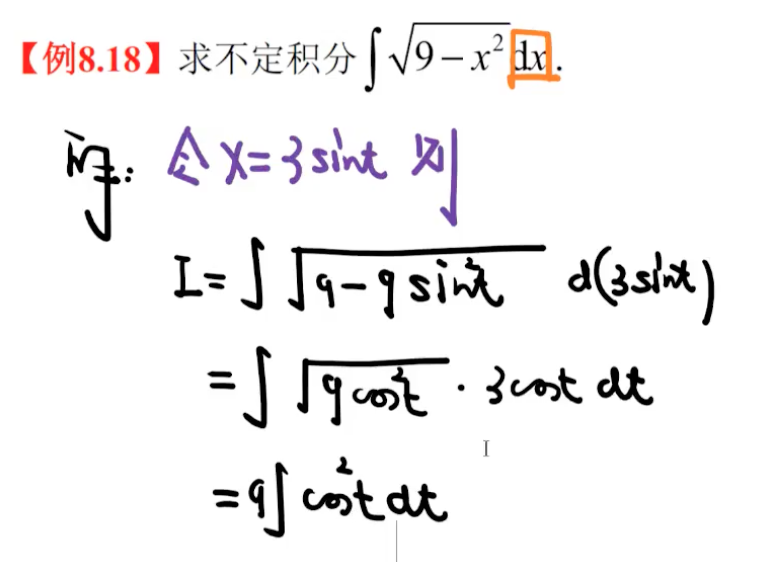 【例8.18】求不定积分∫√(9−x²)dx.
解: 令 x=3sint 则
I=∫√(9−9sin²t) d(3sint)
=∫√(9cos²t)·3cost dt
=9∫cos²t dt